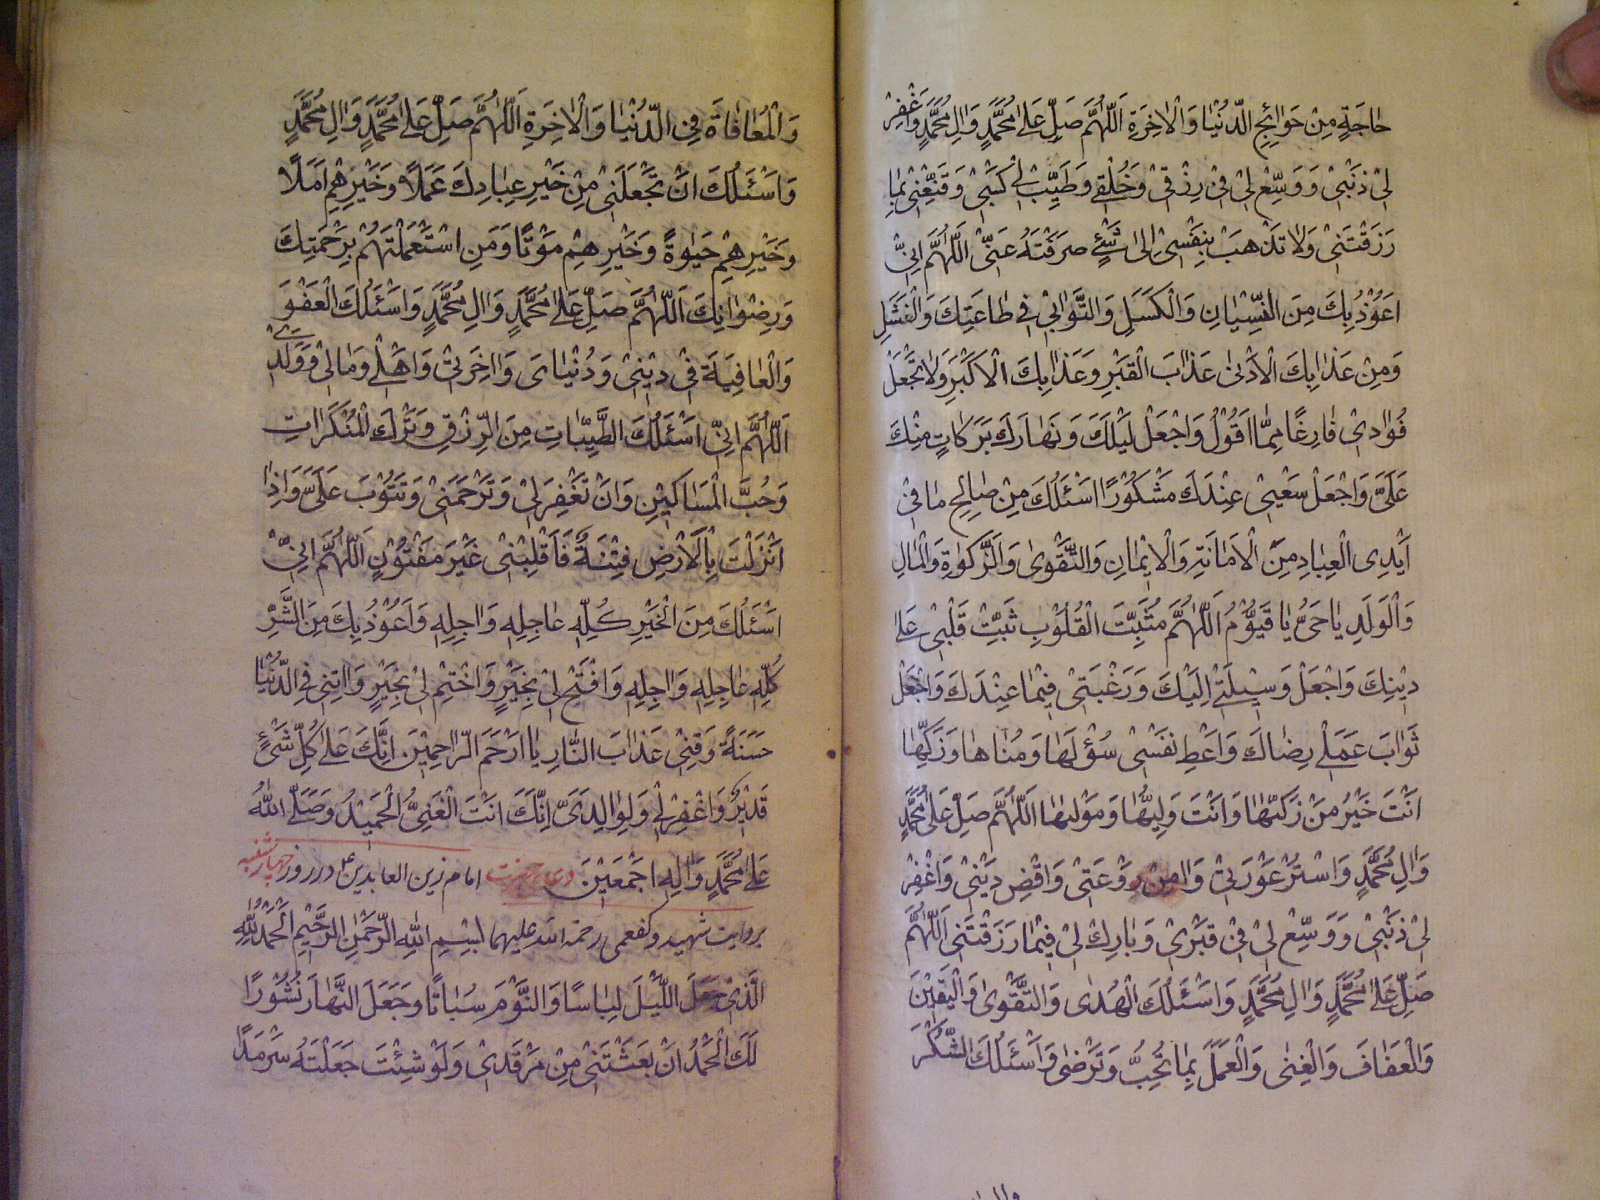 حاجَةٍ مِنْ حَوائِجِ الدُّنْيا وَالْاخِرَةِ اَللّهُمَّ صَلِّ عَلى مُحَمَّدٍ وَالِ مُحَمَّدٍ وَاغْفِرْ
لِيْ ذَنْبِيْ وَوَسِّعْ لِيْ فِيْ رِزْقِيْ وَخُلْقِيْ وَطَيِّبْ لِيْ كَسْبِيْ وَقَنِّعْنِيْ بِما
رَزَقْتَنِيْ وَلا تَذْهَبْ بِنَفْسِيْ اِلى شَيْءٍ صَرَفْتَهُ عَنِّيْ اَللّهُمَّ اِنِّيْ
اَعُوْذُ بِكَ مِنَ النِّسْيانِ وَالْكَسَلِ وَالتَّوانِيْ فِيْ طاعَتِكَ وَالْفَشَلِ
وَمِنْ عَذابِكَ الْاَدْنى عَذابِ الْقَبْرِ وَعَذابِكَ الْاَكْبَرِ وَلا تَجْعَلْ
فُؤادِيْ فارِغًا مِمَّا اَقُوْلُ وَاجْعَلْ لَيْلَكَ وَنَهارَكَ بَرَكاتٍ مِنْكَ
عَلَيَّ وَاجْعَلْ سَعْيِيْ عِنْدَكَ مَشْكُوْرًا اَسْئَلُكَ مِنْ صالِحِ ما فِيْ
اَيْدِى الْعِبادِ مِنَ الْاَمانَةِ وَالْاِيْمانِ وَالتَّقْوى وَالزَّكوةِ وَالْمالِ
وَالْوَلَدِ يا حَىُّ يا قَيُّوْمُ اَللّهُمَّ مُثَبِّتَ الْقُلُوْبِ ثَبِّتْ قَلْبِيْ عَلى
دِيْنِكَ وَاجْعَلْ وَسِيْلَتِيْ اِلَيْكَ وَرَغْبَتِيْ فِيْما عِنْدَكَ وَاجْعَلْ
ثَوابَ عَمَلِيْ رِضاكَ وَاعْطِ نَفْسِيْ سُؤْلَها وَمُناها وَزَكِّها
اَنْتَ خَيْرُ مَنْ زَكّىها وَاَنْتَ وَلِيُّها وَمَوْلىها اَللّهُمَّ صَلِّ عَلى مُحَمَّدٍ
وَالِ مُحَمَّدٍ وَاسْتُرْ عَوْرَتِيْ وَامِنْ رَوْعَتِيْ وَاقْضِ دَيْنِيْ وَاغْفِرْ
لِيْ ذَنْبِيْ وَوَسِّعْ لِيْ فِيْ قَبْرِيْ وَبارِكْ لِيْ فِيْما رَزَقْتَنِيْ اَللّهُمَّ
صَلِّ عَلى مُحَمَّدٍ وَالِ مُحَمَّدٍ وَاَسْئَلُكَ الْهُدى وَالتَّقْوى وَالْيَقِيْنَ
وَالْعَفافَ وَالْغِنى وَالْعَمَلَ بِما تُحِبُّ وَتَرْضى وَاَسْئَلُكَ الشُّكْرَ
وَالْمُعافاةَ فِي الدُّنْيا وَالْاخِرَةِ اَللّهُمَّ صَلِّ عَلى مُحَمَّدٍ وَالِ مُحَمَّدٍ
وَاَسْئَلُكَ اَنْ تَجْعَلَنِيْ مِنْ خَيْرِ عِبادِكَ عَمَلًا وَخَيْرِهِمْ اَمَلًا
وَخَيْرِهِمْ حَيوةً وَخَيْرِهِمْ مَوْتًا وَمَنِ اسْتَعْمَلْتَهُمْ بِرَحْمَتِكَ
وَرِضْوانِكَ اَللّهُمَّ صَلِّ عَلى مُحَمَّدٍ وَالِ مُحَمَّدٍ وَاَسْئَلُكَ الْعَفْوَ
وَالْعافِيَةَ فِيْ دِيْنِيْ وَدُنْياىَ وَاخِرَتِيْ وَاَهْلِيْ وَمالِيْ وَوَلَدِيْ
اَللّهُمَّ اِنِّيْ اَسْئَلُكَ الطَّيِّباتِ مِنَ الرِّزْقِ وَتَرْكَ الْمُنْكَراتِ
وَحُبَّ الْمَساكِيْنِ وَاَنْ تَغْفِرَ لِيْ وَتَرْحَمَنِيْ وَتَتُوْبَ عَلَيَّ وَاِذا
اَنْزَلْتَ بِالْاَرْضِ فِتْنَةً فَاَقْلِبْنِيْ غَيْرَ مَفْتُوْنٍ اَللّهُمَّ اِنِّيْ
اَسْئَلُكَ مِنَ الْخَيْرِ كُلِّهِ عاجِلِهِ وَاجِلِهِ وَاَعُوْذُ بِكَ مِنَ الشَّرِّ
كُلِّهِ عاجِلِهِ وَاجِلِهِ وَافْتَحْ لِيْ بِخَيْرٍ وَاخْتِمْ لِيْ بِخَيْرٍ وَاتِنِيْ فِي الدُّنْيا
حَسَنَةً وَقِنِيْ عَذابَ النَّارِ يا اَرْحَمَ الرّاحِمِيْنَ اِنَّكَ عَلى كُلِّ شَيْءٍ
قَدِيْرٌ وَاغْفِرْ لِيْ وَلِوالِدَىَّ اِنَّكَ اَنْتَ الْغَنِيُّ الْحَمِيْدُ وَصَلَّى اللهُ
عَلى مُحَمَّدٍ وَالِهِ اَجْمَعِيْنَ دعاء حضرت امام زين العابدين ع در روز چهارشنبه
بروايت شهيد و كفعمى رحمة الله عليهما بِسْمِ اللهِ الرَّحْمنِ الرَّحِيْمِ اَلْحَمْدُ لِلّهِ
الَّذِيْ جَعَلَ اللَّيْلَ لِباسًا وَالنَّوْمَ سُباتًا وَجَعَلَ النَّهارَ نُشُوْرًا
لَكَ الْحَمْدُ اَنْ بَعَثْتَنِيْ مِنْ مَرْقَدِيْ وَلَوْ شِئْتَ جَعَلْتَهُ سَرْمَدًا